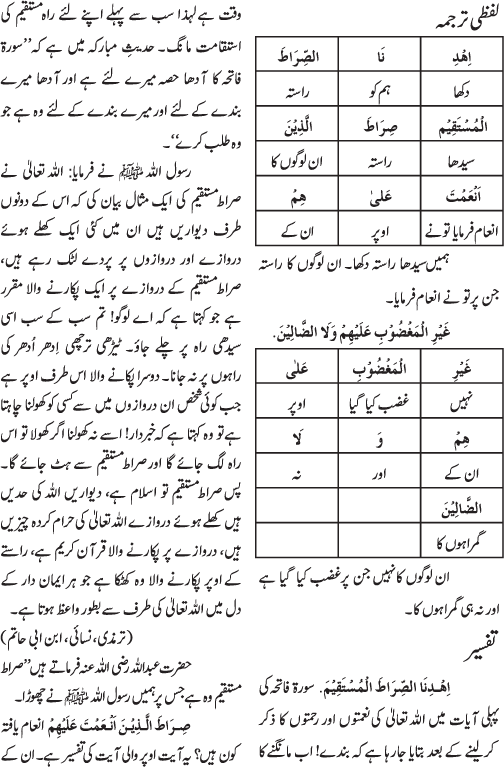 لفظی ترجمہ
اِهْدِ نَا الصِّرَاطَ
دکھا ہم کو راستہ
الْمُسْتَقِيْمَ صِرَاطَ الَّذِيْنَ
سیدھا راستہ ان لوگوں کا
اَنْعَمْتَ عَلیٰ هِمْ
انعام فرمایا تونے اوپر ان کے
ہمیں سیدھا راستہ دکھا۔ ان لوگوں کا راستہ
جن پر تو نے انعام فرمایا۔
غَيْرِ الْمَغْضُوْبِ عَلَيْهِمْ وَلَا الضَّالِيْنَ.
غَيْرِ الْمَغْضُوْبِ عَلیٰ
نہیں غضب کیا گیا اوپر
هِمْ وَ لَا
ان کے اور نہ
الضَّالِيْنَ
گمراہوں کا
ان لوگوں کا نہیں جن پر غضب کیا گیا ہے
اور نہ ہی گمراہوں کا۔
تفسیر
اِهْدِنَا الصِّرَاطَ الْمُسْتَقِيْمَ. سورۃ فاتحہ کی
پہلی آیات میں اللہ تعالیٰ کی نعمتوں اور رحمتوں کا ذکر
کر لینے کے بعد بتایا جا رہا ہے کہ بندے! اب مانگنے کا
وقت ہے لہذا سب سے پہلے اپنے لئے راہ مستقیم کی
استقامت مانگ۔ حدیثِ مبارکہ میں ہے کہ ”سورۃ
فاتحہ کا آدھا حصہ میرے لئے ہے اور آدھا میرے
بندے کے لئے اور میرے بندے کے لئے وہ ہے جو
وہ طلب کرے“۔
رسول اللہ ﷺ نے فرمایا: اللہ تعالیٰ نے
صراط مستقیم کی ایک مثال بیان کی کہ اس کے دونوں
طرف دیواریں ہیں ان میں کئی ایک کھلے ہوئے
دروازے اور دروازوں پر پردے لٹک رہے ہیں،
صراط مستقیم کے دروازے پر ایک پکارنے والا مقرر
ہے جو کہتا ہے کہ اے لوگو! تم سب کے سب اسی
سیدھی راہ پر چلے جاؤ۔ ٹیڑھی ترچھی اِدھر اُدھر کی
راہوں پر نہ جانا۔ دوسرا پکارنے والا اس طرف اوپر ہے
جب کوئی شخص ان دروازوں میں سے کسی کو کھولنا چاہتا
ہے تو وہ کہتا ہے کہ خبردار! اسے نہ کھولنا اگر کھولا تو اس
راہ لگ جائے گا اور صراط مستقیم سے ہٹ جائے گا۔
پس صراط مستقیم تو اسلام ہے، دیواریں اللہ کی حدیں
ہیں کھلے ہوئے دروازے اللہ تعالیٰ کی حرام کردہ چیزیں
ہیں، دروازے پر پکارنے والا قرآن کریم ہے، راستے
کے اوپر پکارنے والا وہ کھٹکا ہے جو ہر ایمان دار کے
دل میں اللہ تعالیٰ کی طرف سے بطور واعظ ہوتا ہے۔
(ترمذی، نسائی، ابن ابی حاتم)
حضرت عبداللہ رضی اللہ عنہ فرماتے ہیں ”صراط
مستقیم وہ ہے جس پر ہمیں رسول اللہ ﷺ نے چھوڑا۔
صِرَاطَ الَّذِيْنَ اَنْعَمْتَ عَلَيْهِمْ انعام یافتہ
کون ہیں؟ یہ آیت اوپر والی آیت کی تفسیر ہے۔ ان کے